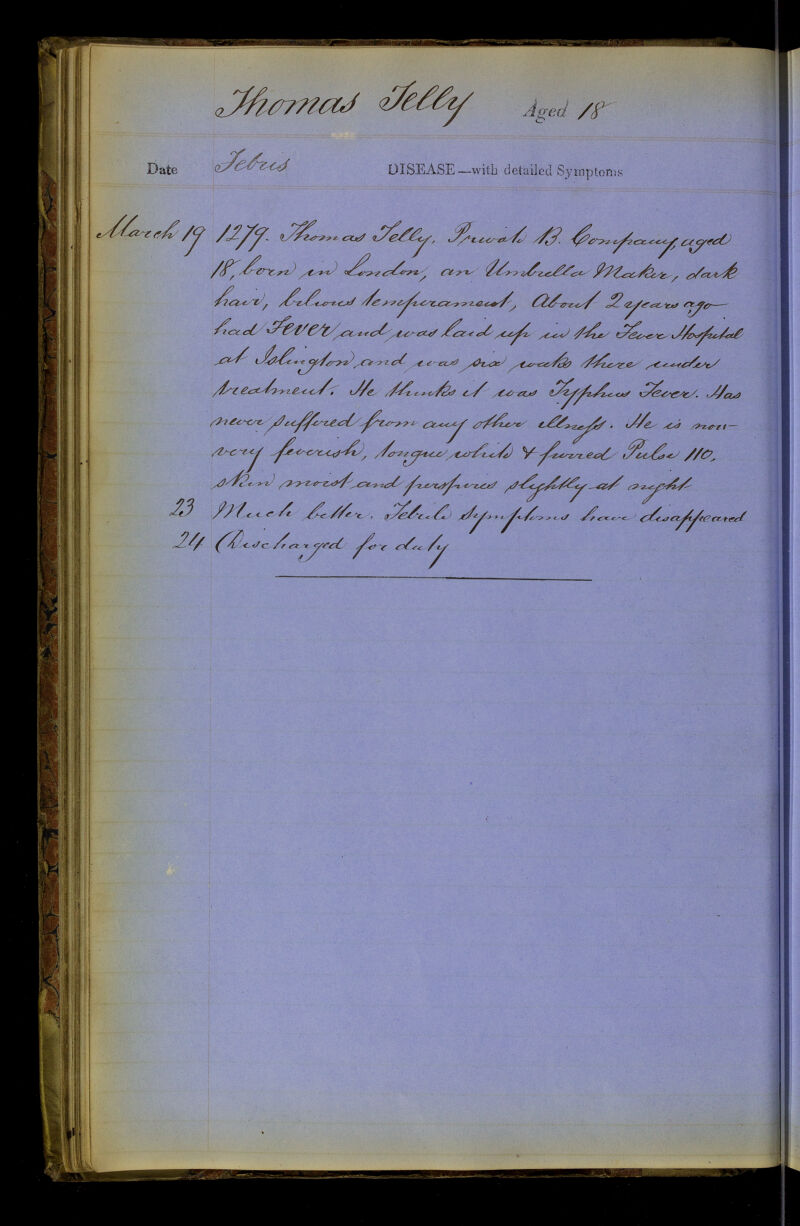 Thomas Jelly Aged 18
Date Febris DISEASE—with detailed Symptoms
March 19 1279. Thomas Jelly. Private B. Company, aged
18, born in London, an Umbrella Maker, dark
hair, bilious temperament, About 2 years ago
had Fever and was laid up in the Fever Hospital
at Islington and was six weeks there under
treatment. He thinks it was Typhus Fever. Has
never suffered from any other illness. He is now
very feverish, tongue white & furred Pulse 110,
skin moist and perspires slightly at night
23 Much better. Febrile symptoms have disappeared
24 Discharged for duty